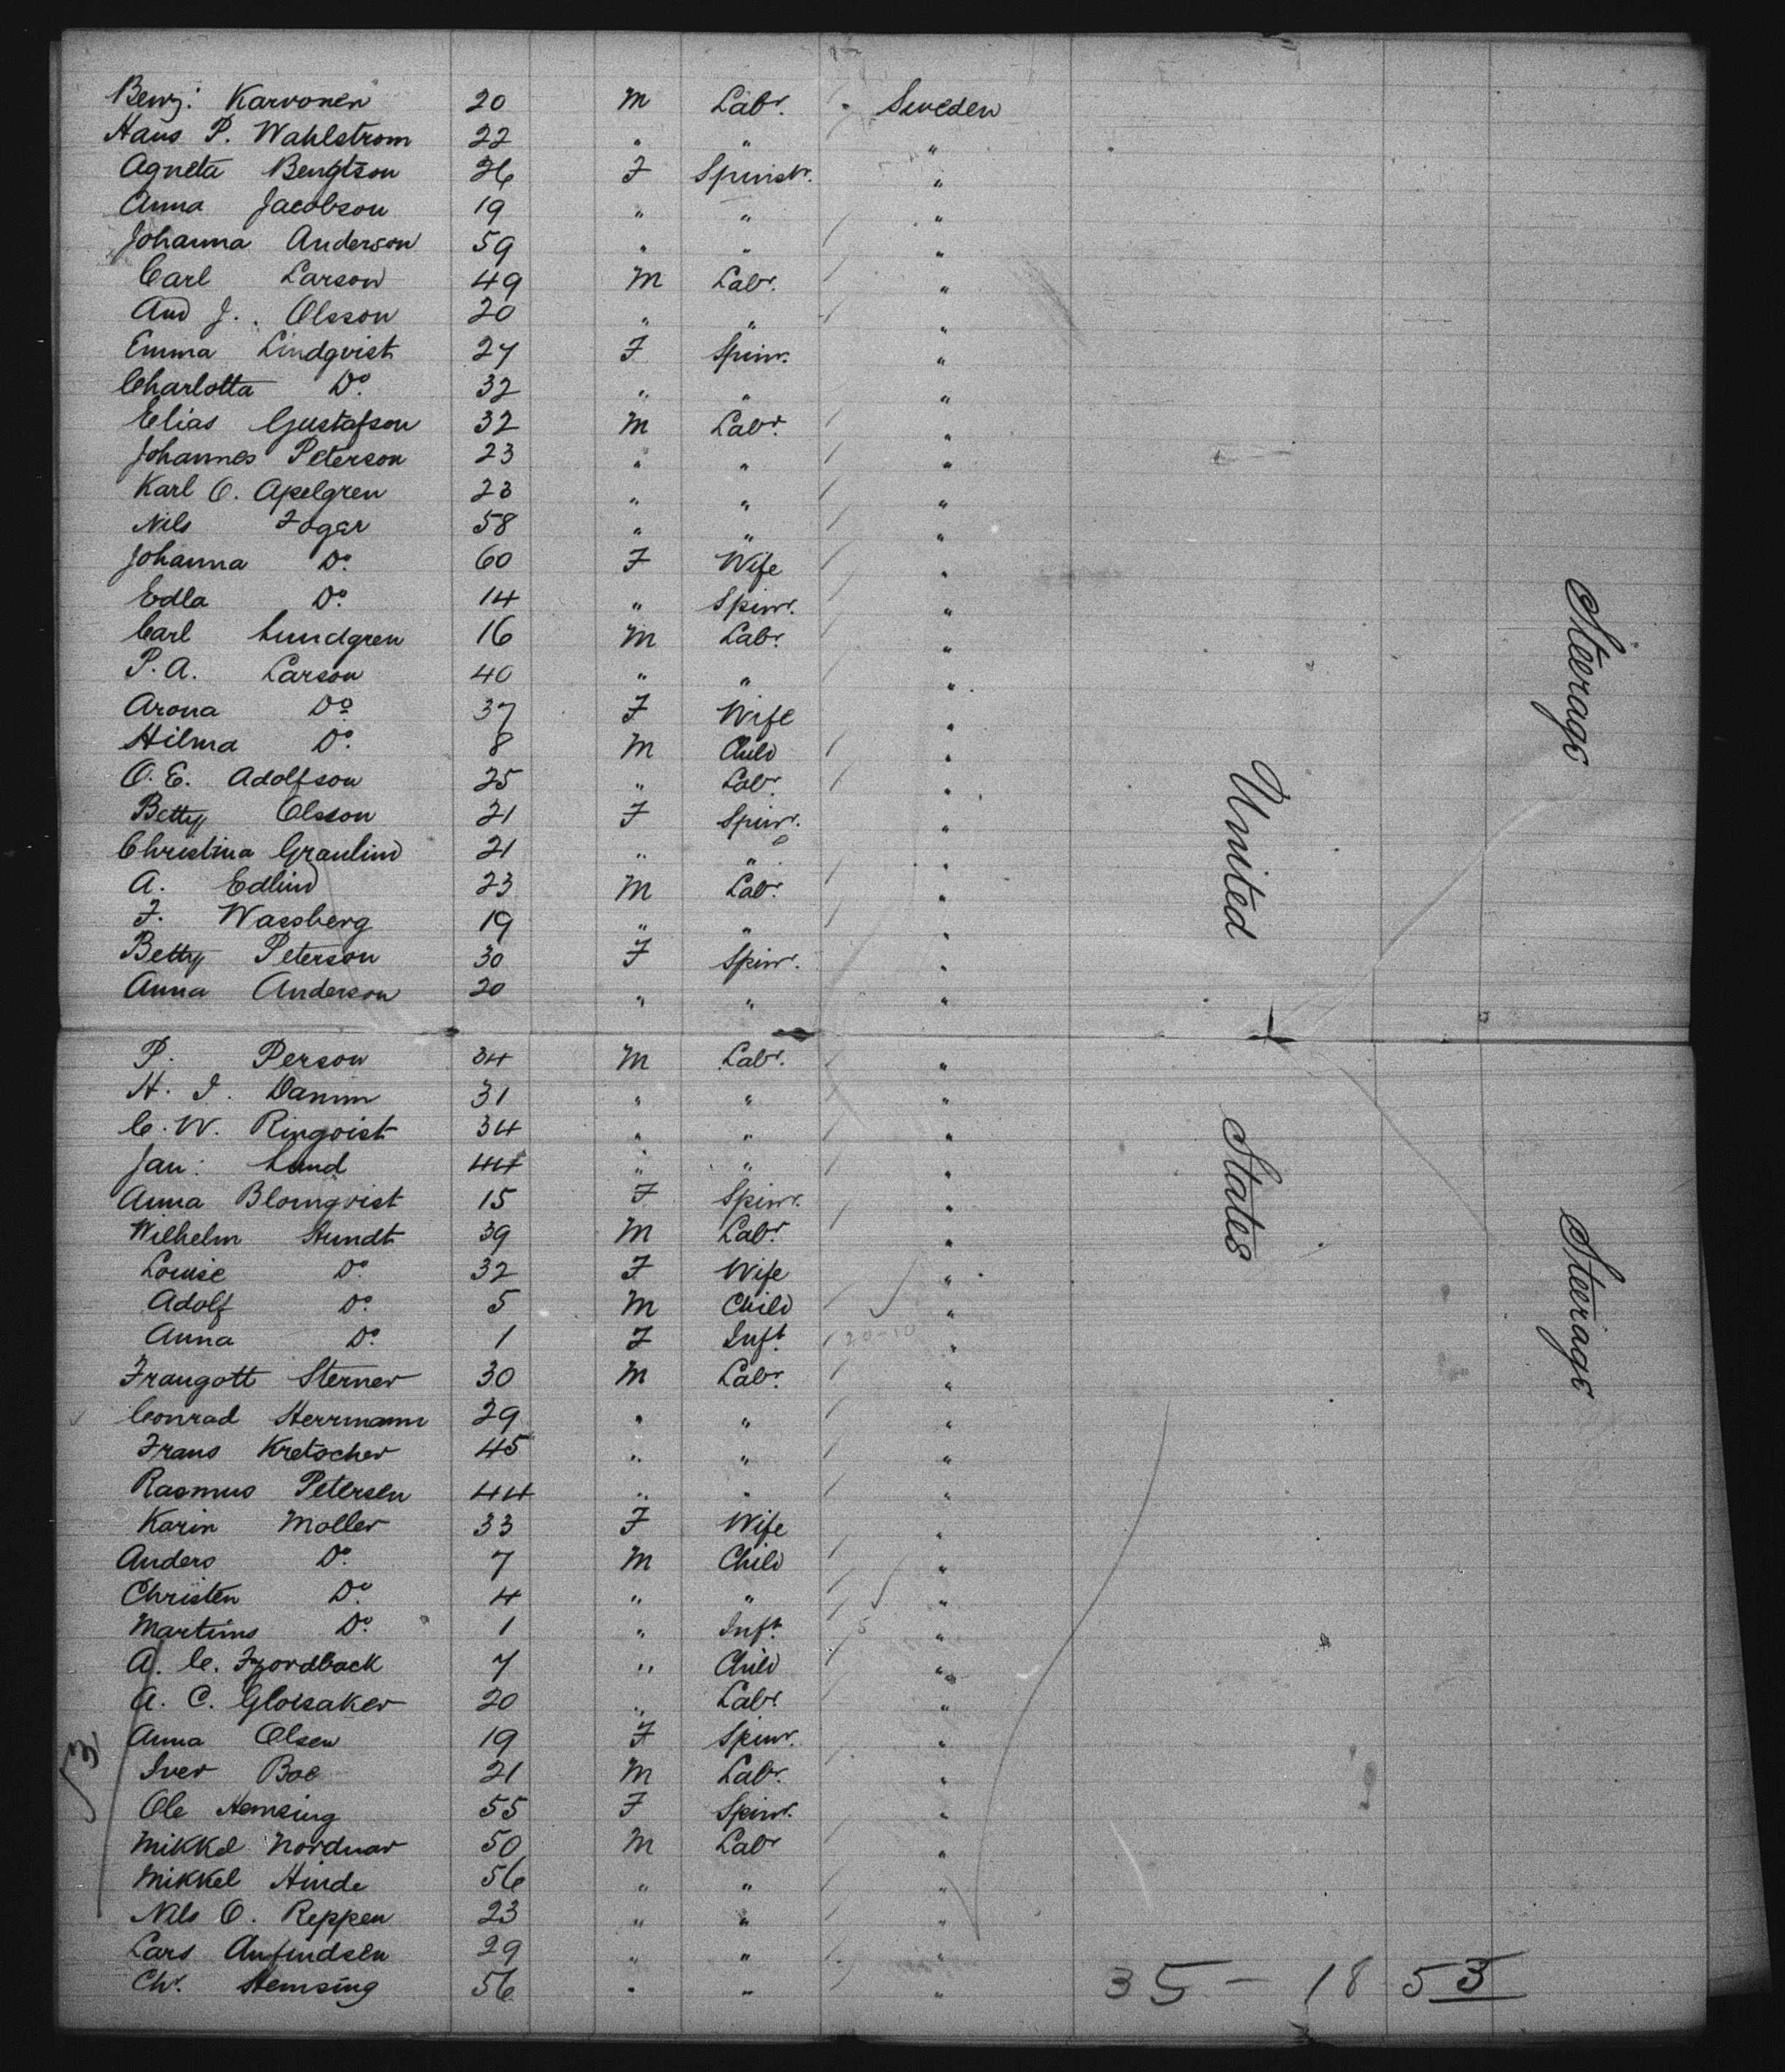 Benj: Karvonen 20 M Labr. Sweden
Hans P. Wahlstrom 22 " " "
Agneta Bengtson 26 F Spinstr. "
Anna Jacobson 19 " " "
Johanna Anderson 59 " " "
Carl Larson 49 M Labr. "
And J. Olsson 20 " " "
Emma Lindqvist 27 F Spinr. "
Charlotta Do. 32 " " "
Elias Gustafson 32 M Labr. "
Johannes Peterson 23 " " "
Karl O. Apelgren 23 " " "
Nils Fogar 58 " " "
Johanna Do. 60 F Wife "
Edla Do. 14 " Spinr. "
Carl Lundgren 16 M Labr. "
P. A. Larson 40 " " "
Arona Do. 37 F Wife "
Hilma Do. 8 M Child "
O. E. Adolfson 25 " Labr. "
Betty Olsson 21 F Spinr. "
Christina Graulind 21 " " "
A. Edlind 23 M Labr. "
F. Wassberg 19 " " "
Betty Peterson 30 F Spinr. "
Anna Anderson 20 " " "
P. Person 34 M Labr. "
H. I. Damm 31 " " "
C. W. Ringvist 34 " " "
Jan: Lund 44 " " "
Anna Blomqvist 15 F Spinr. "
Wilhelm Hundt 39 M Labr. "
Louise Do. 32 F Wife "
Adolf Do. 5 M Child "
Anna Do. 1 F Inft. "
Fraugott Sterner 30 M Labr. "
Conrad Herrmann 29 " " "
Frans Kretscher 45 " " "
Rasmus Petersen 44 " " "
Karin Moller 33 F Wife "
Anders Do. 7 M Child "
Christen Do. 4 " " "
Martinus Do. 1 " Inft. "
A. C. Fjordback 7 " Child "
A. C. 20 " Labr. "
Anna Olsen 19 F Spinr. "
Iver Boe 21 M Labr. "
Ole Hemsing 55 F Spinr. "
Mikkel 50 M Labr "
Mikkel Hinde 56 " " "
Nils O. Reppen 23 " " "
Lars Anfindsen 29 " " "
Chr. Hemsing 56 " " "
United States
Steerage
Steerage
53
35 - 18 53